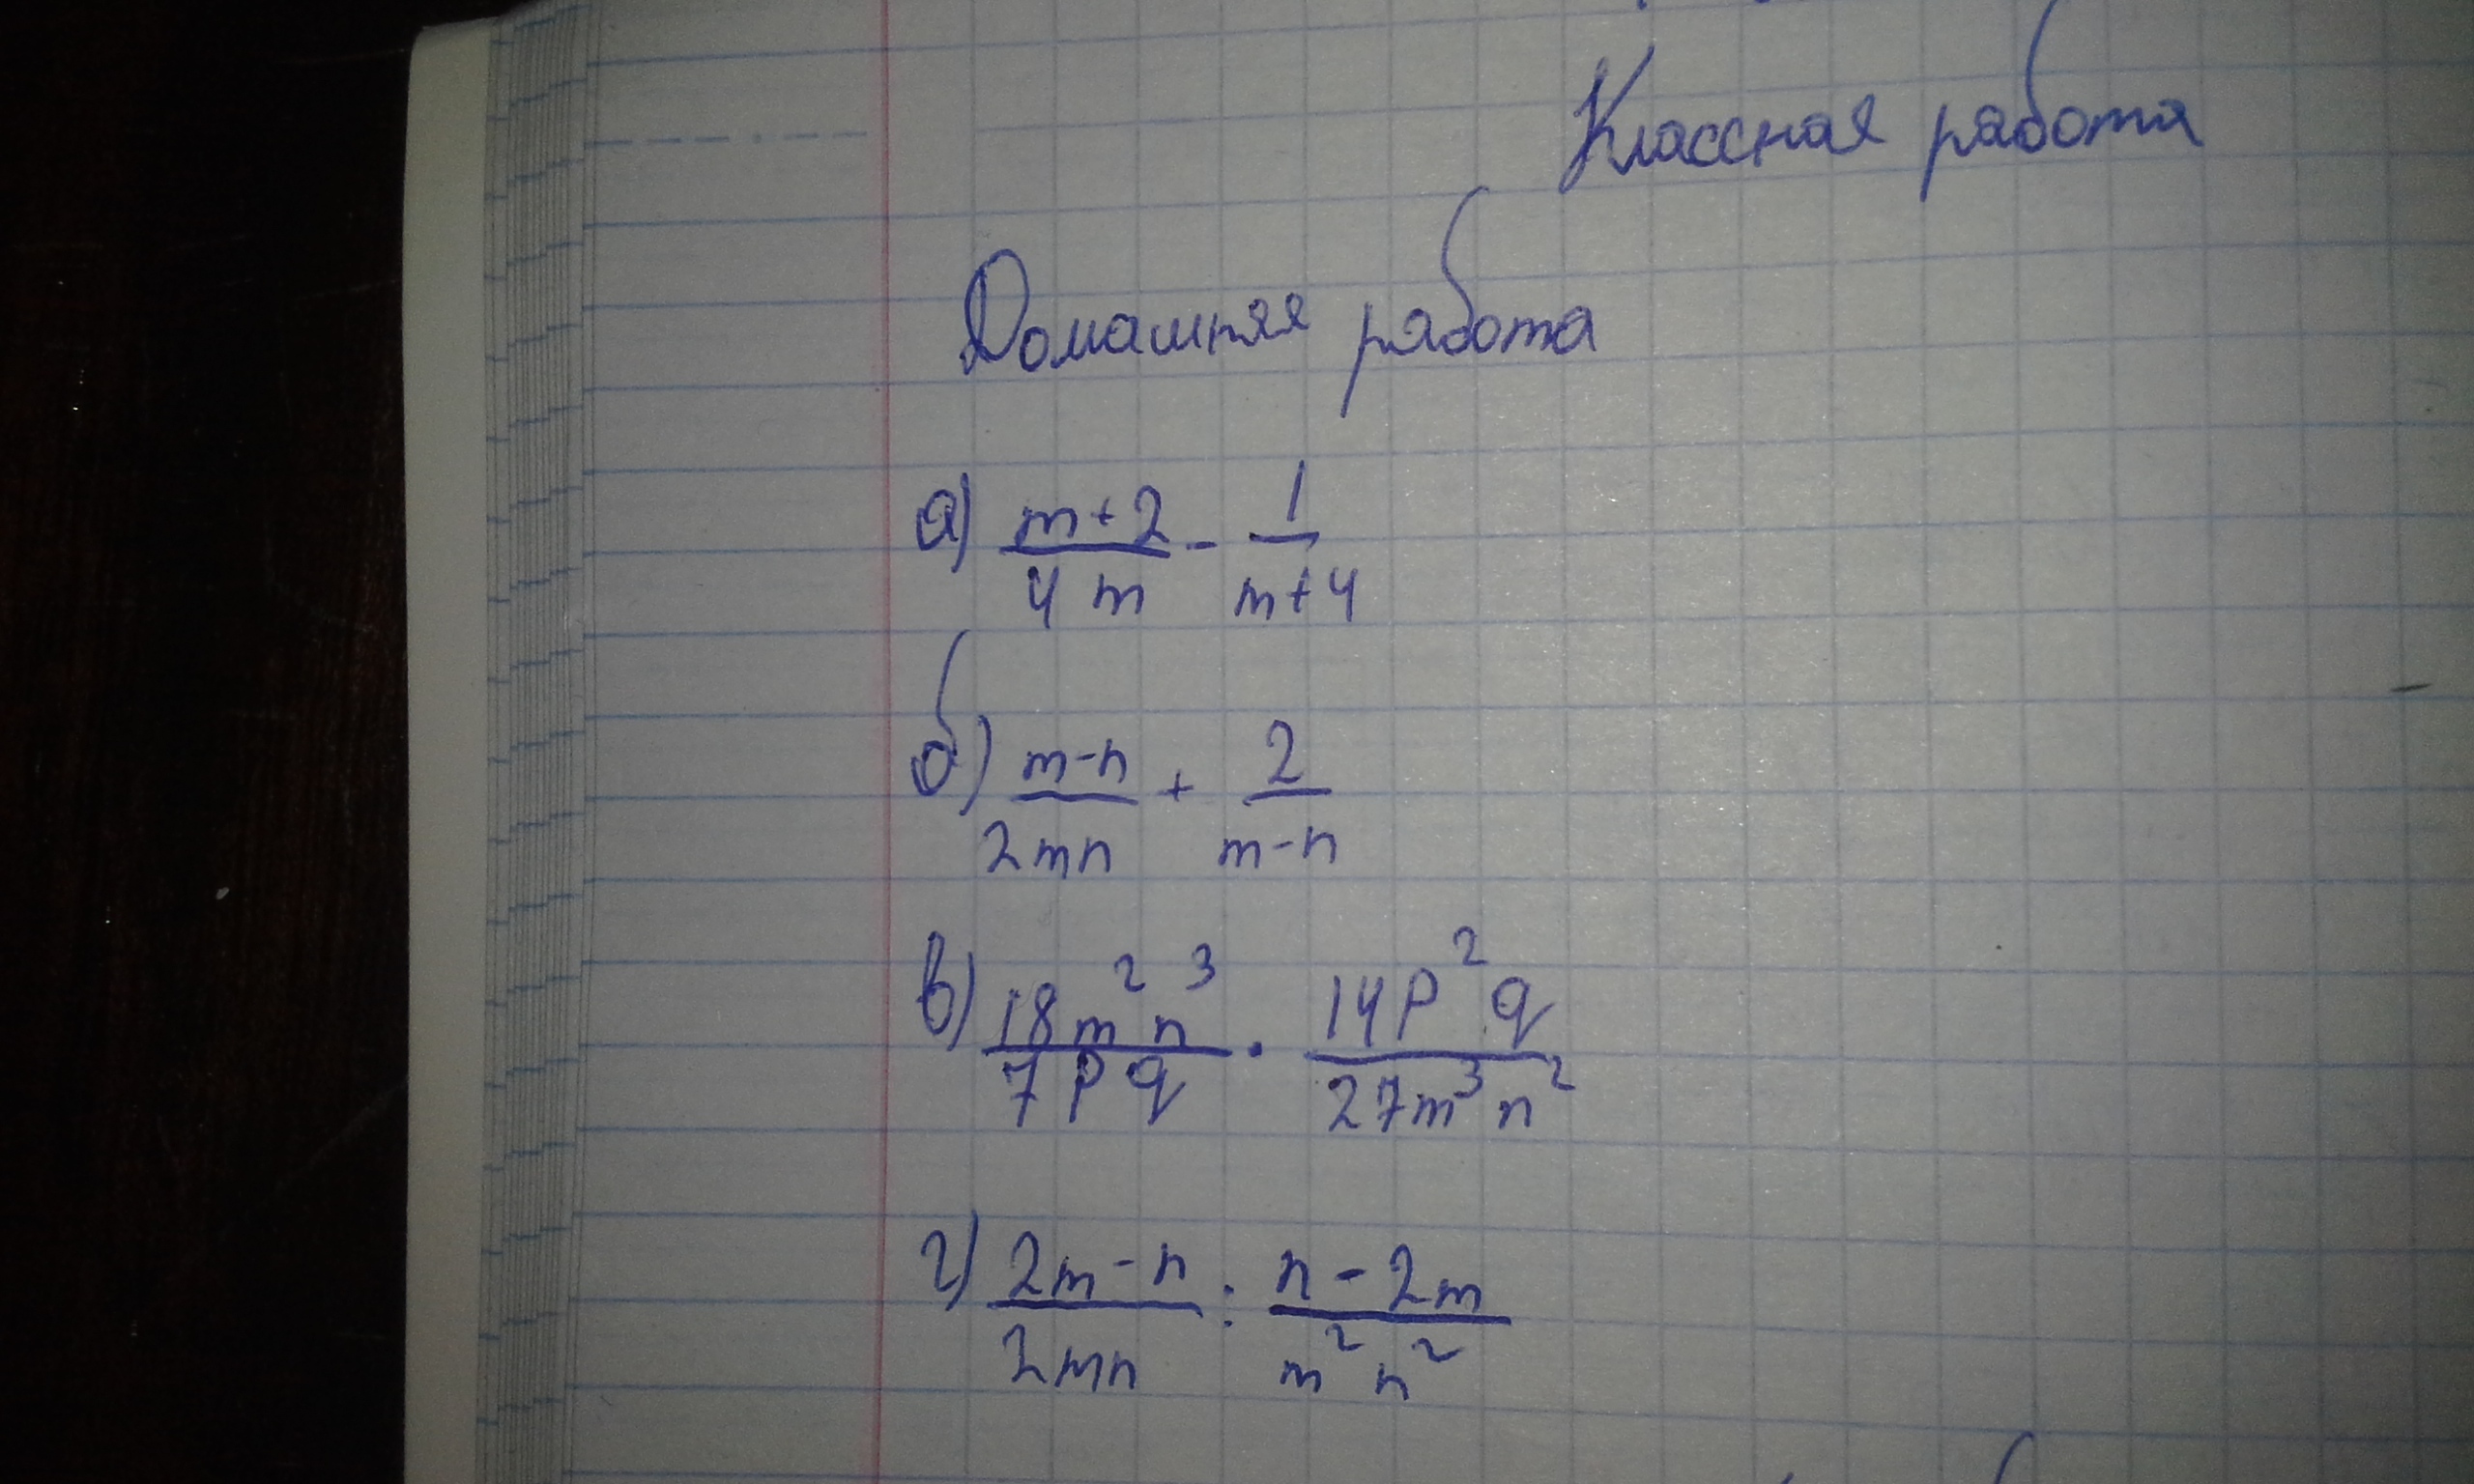 Классная работа
Домашняя работа
а) (m+2)/(4m) - 1/(m+4)
б) (m-n)/(2mn) + 2/(m-n)
в) (18m²n³)/(7pq) · (14p²q)/(27m³n²)
г) (2m-n)/(2mn) : (n-2m)/(m²n²)